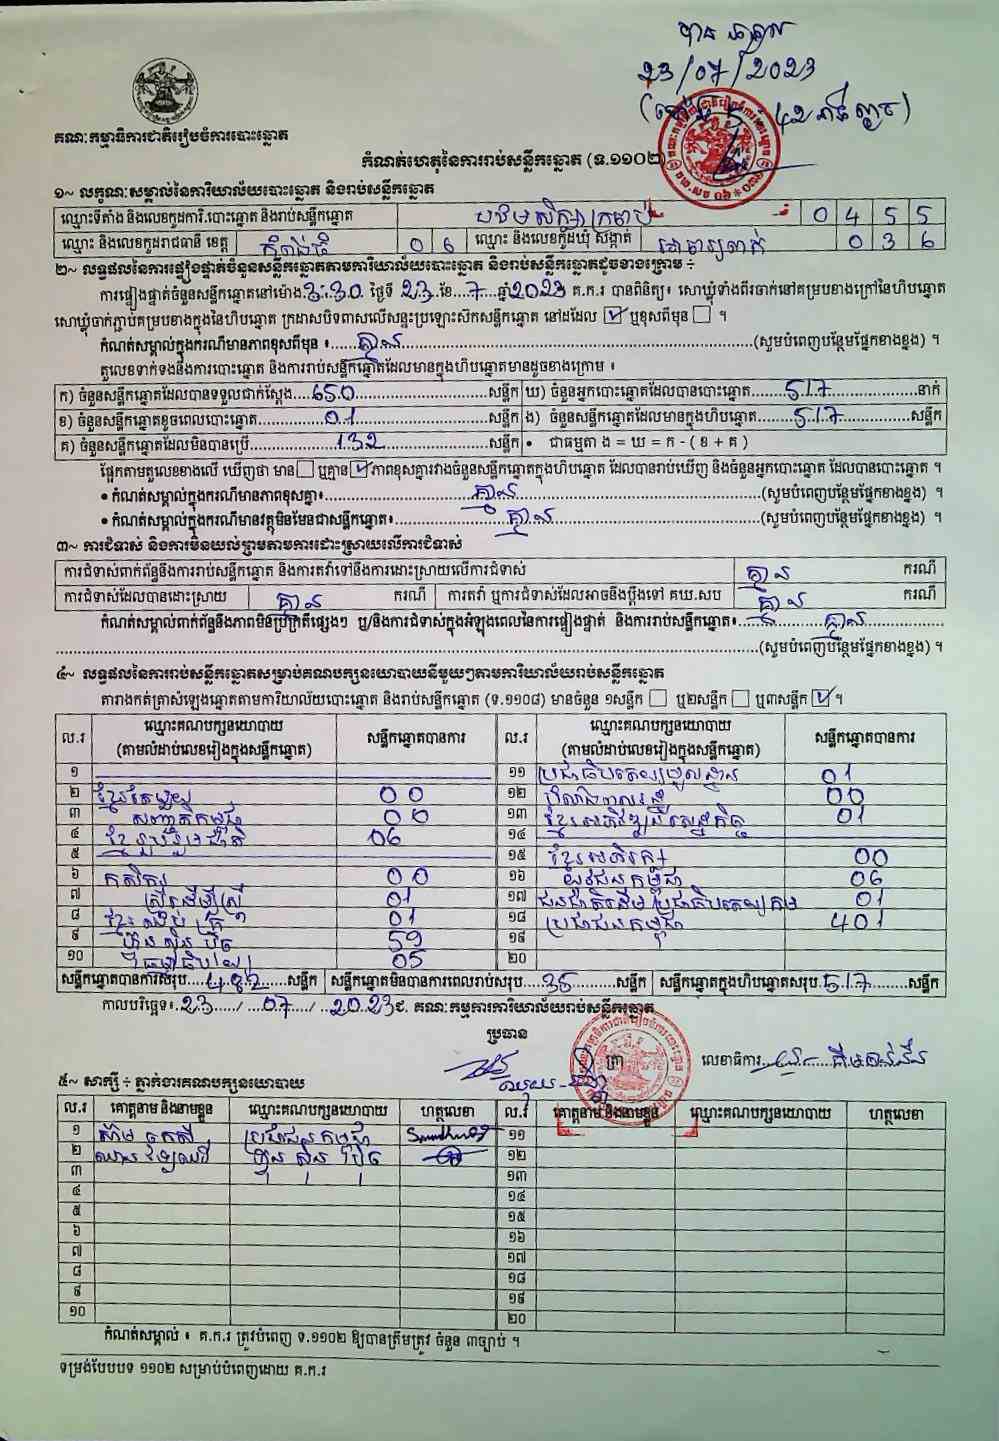 23/07/2023
គណៈកម្មាធិការជាតិរៀបចំការបោះឆ្នោត
កំណត់ហេតុនៃការរាប់សន្លឹកឆ្នោត (ទ.១១០២)
១~ លក្ខណៈសម្គាល់នៃការិយាល័យបោះឆ្នោត និងរាប់សន្លឹកឆ្នោត
ឈ្មោះទីតាំង និងលេខកូដការិ.បោះឆ្នោត និងរាប់សន្លឹកឆ្នោត 0 4 5 5
ឈ្មោះ និងលេខកូដរាជធានី ខេត្ត កំពង់ធំ 0 6 ឈ្មោះ និងលេខកូដឃុំ សង្កាត់ 0 3 6
២~ លទ្ធផលនៃការផ្ទៀងផ្ទាត់ចំនួនសន្លឹកឆ្នោតតាមការិយាល័យបោះឆ្នោត និងរាប់សន្លឹកឆ្នោតដូចខាងក្រោម ៖
ការផ្ទៀងផ្ទាត់ចំនួនសន្លឹកឆ្នោតនៅម៉ោង 3:30 ថ្ងៃទី 23 ខែ 7 ឆ្នាំ 2023 គ.ក.រ បានពិនិត្យ៖ សោឃ្លុំទាំងពីរចាក់នៅគម្របខាងក្រៅនៃហិបឆ្នោត
សោឃ្លុំចាក់ភ្ជាប់គម្របខាងក្នុងនៃហិបឆ្នោត ក្រដាសបិទពាសលើសន្ទះប្រឡោះស៊កសន្លឹកឆ្នោត នៅដដែល ☑ ឬខុសពីមុន ☐ ។
កំណត់សម្គាល់ក្នុងករណីមានភាពខុសពីមុន ៖ គ្មាន (សូមបំពេញបន្ថែមផ្នែកខាងខ្នង) ។
តួលេខទាក់ទងនឹងការបោះឆ្នោត និងការរាប់សន្លឹកឆ្នោតដែលមានក្នុងហិបឆ្នោតមានដូចខាងក្រោម ៖
ក) ចំនួនសន្លឹកឆ្នោតដែលបានទទួលជាក់ស្តែង 650 សន្លឹក ឃ) ចំនួនអ្នកបោះឆ្នោតដែលបានបោះឆ្នោត 517 នាក់
ខ) ចំនួនសន្លឹកឆ្នោតខូចពេលបោះឆ្នោត 01 សន្លឹក ង) ចំនួនសន្លឹកឆ្នោតដែលមានក្នុងហិបឆ្នោត 517 សន្លឹក
គ) ចំនួនសន្លឹកឆ្នោតដែលមិនបានប្រើ 132 សន្លឹក • ជាធម្មតា ង = ឃ = ក - ( ខ + គ )
ផ្អែកតាមតួលេខខាងលើ ឃើញថា មាន ☐ ឬគ្មាន ☑ ភាពខុសគ្នារវាងចំនួនសន្លឹកឆ្នោតក្នុងហិបឆ្នោត ដែលបានរាប់ឃើញ និងចំនួនអ្នកបោះឆ្នោត ដែលបានបោះឆ្នោត ។
• កំណត់សម្គាល់ក្នុងករណីមានភាពខុសគ្នា៖ គ្មាន (សូមបំពេញបន្ថែមផ្នែកខាងខ្នង) ។
• កំណត់សម្គាល់ក្នុងករណីមានវត្ថុមិនមែនជាសន្លឹកឆ្នោត៖ គ្មាន (សូមបំពេញបន្ថែមផ្នែកខាងខ្នង) ។
៣~ ការជំទាស់ និងការមិនយល់ព្រមតាមការដោះស្រាយលើការជំទាស់
ការជំទាស់ពាក់ព័ន្ធនឹងការរាប់សន្លឹកឆ្នោត និងការតវ៉ាទៅនឹងការដោះស្រាយលើការជំទាស់ គ្មាន ករណី
ការជំទាស់ដែលបានដោះស្រាយ គ្មាន ករណី ការតវ៉ា ឬការជំទាស់ដែលអាចនឹងប្តឹងទៅ គឃ.សប គ្មាន ករណី
កំណត់សម្គាល់ពាក់ព័ន្ធនឹងភាពមិនប្រក្រតីផ្សេងៗ ឬ/និងការជំទាស់ក្នុងអំឡុងពេលនៃការផ្ទៀងផ្ទាត់ និងការរាប់សន្លឹកឆ្នោត៖ គ្មាន
(សូមបំពេញបន្ថែមផ្នែកខាងខ្នង) ។
៤~ លទ្ធផលនៃការរាប់សន្លឹកឆ្នោតសម្រាប់គណបក្សនយោបាយនីមួយៗតាមការិយាល័យរាប់សន្លឹកឆ្នោត
តារាងកត់ត្រាសំឡេងឆ្នោតតាមការិយាល័យបោះឆ្នោត និងរាប់សន្លឹកឆ្នោត (ទ.១១០៨) មានចំនួន ១សន្លឹក ☐ ឬ២សន្លឹក ☐ ឬ៣សន្លឹក ☑ ។
ល.រ ឈ្មោះគណបក្សនយោបាយ (តាមលំដាប់លេខរៀងក្នុងសន្លឹកឆ្នោត) សន្លឹកឆ្នោតបានការ ល.រ ឈ្មោះគណបក្សនយោបាយ (តាមលំដាប់លេខរៀងក្នុងសន្លឹកឆ្នោត) សន្លឹកឆ្នោតបានការ
១ ១១ ប្រជាធិបតេយ្យមូលដ្ឋាន 01
២ ខ្មែរតែមួយ 00 ១២ 00
៣ សញ្ជាតិកម្ពុជា 00 ១៣ ខ្មែរអភិវឌ្ឍន៍សេដ្ឋកិច្ច 01
៤ ខ្មែររួបរួមជាតិ 06 ១៤
៥ ១៥ ខ្មែរអភិរក្ស 00
៦ កសិករ 00 ១៦ យុវជនកម្ពុជា 06
៧ ស្ត្រីដើម្បីស្ត្រី 01 ១៧ ជនជាតិដើមប្រជាធិបតេយ្យកម្ពុជា 01
៨ ខ្មែរឈប់ក្រ 01 ១៨ ប្រជាជនកម្ពុជា 401
៩ ហ៊្វុនស៊ិនប៉ិច 59 ១៩
១០ ធម្មាធិបតេយ្យ 05 ២០
សន្លឹកឆ្នោតបានការសរុប 482 សន្លឹក សន្លឹកឆ្នោតមិនបានការពេលរាប់សរុប 35 សន្លឹក សន្លឹកឆ្នោតក្នុងហិបឆ្នោតសរុប 517 សន្លឹក
កាលបរិច្ឆេទ៖ 23 / 07 / 2023 ជ. គណៈកម្មការការិយាល័យរាប់សន្លឹកឆ្នោត
ប្រធាន
ត្រា លេខាធិការ
៥~ សាក្សី ៖ ភ្នាក់ងារគណបក្សនយោបាយ
ល.រ គោត្តនាម និងនាមខ្លួន ឈ្មោះគណបក្សនយោបាយ ហត្ថលេខា ល.រ គោត្តនាម និងនាមខ្លួន ឈ្មោះគណបក្សនយោបាយ ហត្ថលេខា
១ ប្រជាជនកម្ពុជា ១១
២ ហ៊្វុន ស៊ិន ប៉ិច ១២
៣ ១៣
៤ ១៤
៥ ១៥
៦ ១៦
៧ ១៧
៨ ១៨
៩ ១៩
១០ ២០
កំណត់សម្គាល់ ៖ គ.ក.រ ត្រូវបំពេញ ទ.១១០២ ឱ្យបានត្រឹមត្រូវ ចំនួន ៣ច្បាប់ ។
ទម្រង់បែបបទ ១១០២ សម្រាប់បំពេញដោយ គ.ក.រ